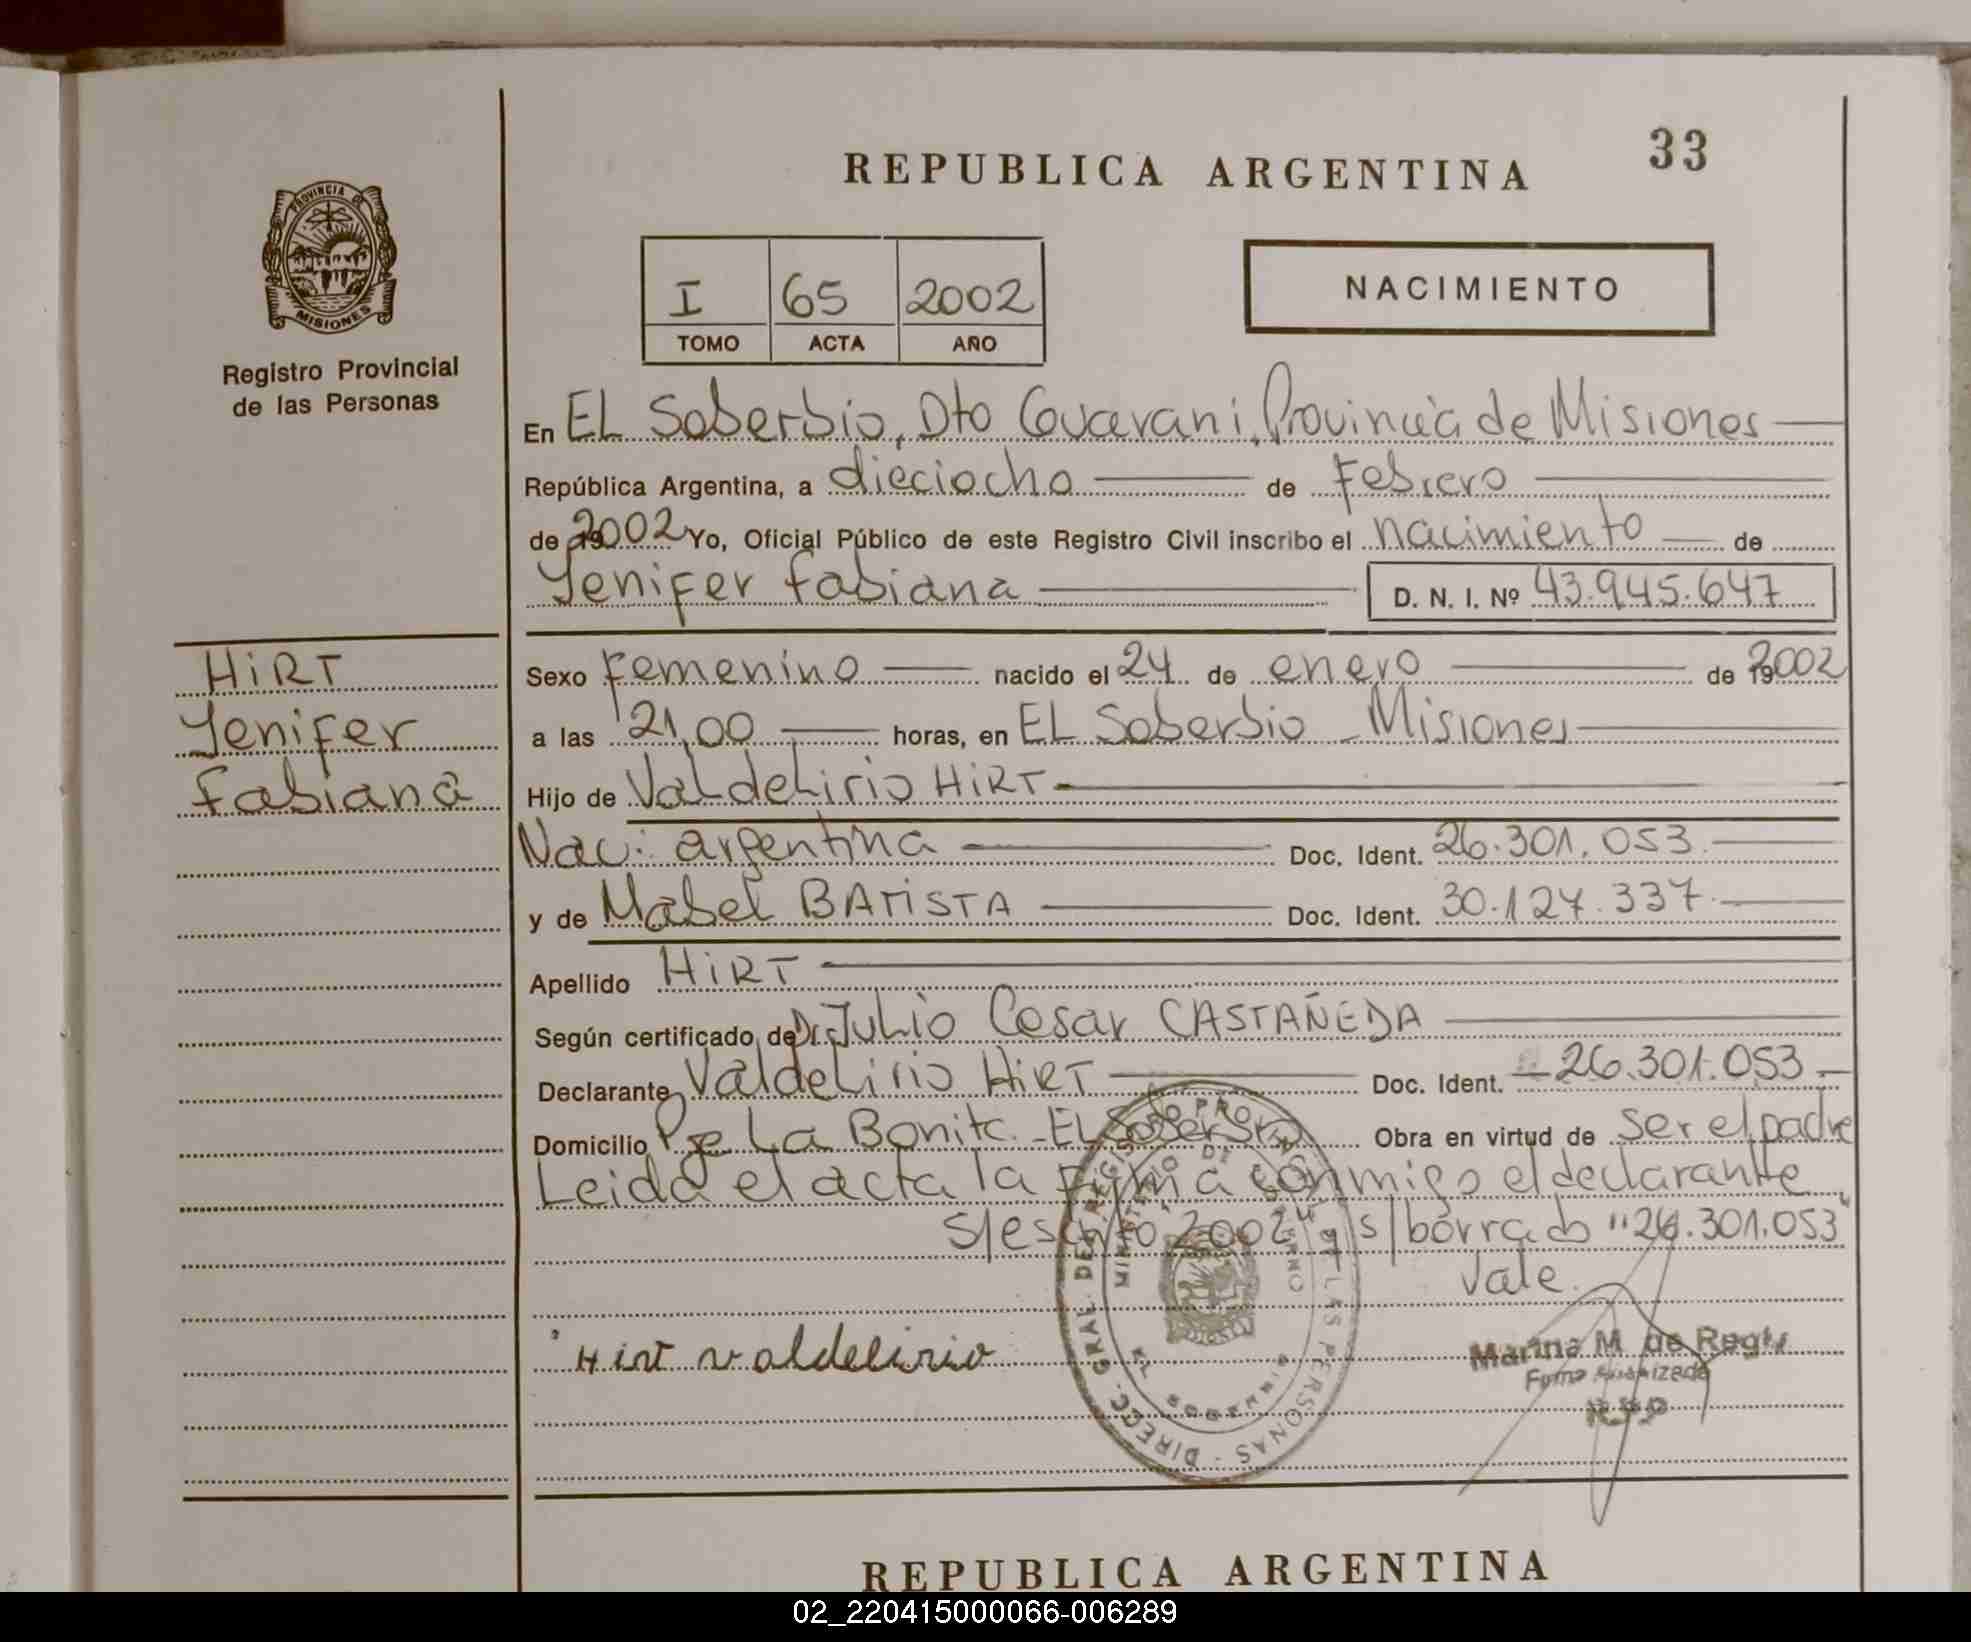 33
REPUBLICA ARGENTINA
PROVINCIA DE MISIONES
Registro Provincial
de las Personas
I 65 2002
TOMO ACTA AÑO
NACIMIENTO
En EL Soberbio, Dto Guarani, Provincia de Misiones
República Argentina, a dieciocho de Febrero
de 2002 Yo, Oficial Público de este Registro Civil inscribo el nacimiento de
Yenifer Fabiana D. N. I. Nº 43.945.647
HIRT
Yenifer
Fabiana
Sexo Femenino nacido el 24 de enero de 2002
a las 21,00 horas, en EL Soberbio - Misiones
Hijo de Valdelirio HIRT
Nac: argentina Doc. Ident. 26.301.053
y de Mabel BATISTA Doc. Ident. 30.127.337
Apellido HIRT
Según certificado de Dr. Julio Cesar CASTAÑEDA
Declarante Valdelirio HIRT Doc. Ident. 26.301.053
Domicilio Pje La Bonita - EL Soberbio Obra en virtud de ser el padre
Leida el acta la firma conmigo el declarante
s/escrito 2002" y s/borrado "26.301.053"
Vale.
Hirt valdelirio
Marina M. de Regis
Firma Autorizada
DIRECC. GRAL. DEL REGISTRO PROV. DE LAS PERSONAS
MINISTERIO DE GOBIERNO
REPUBLICA ARGENTINA
02_220415000066-006289